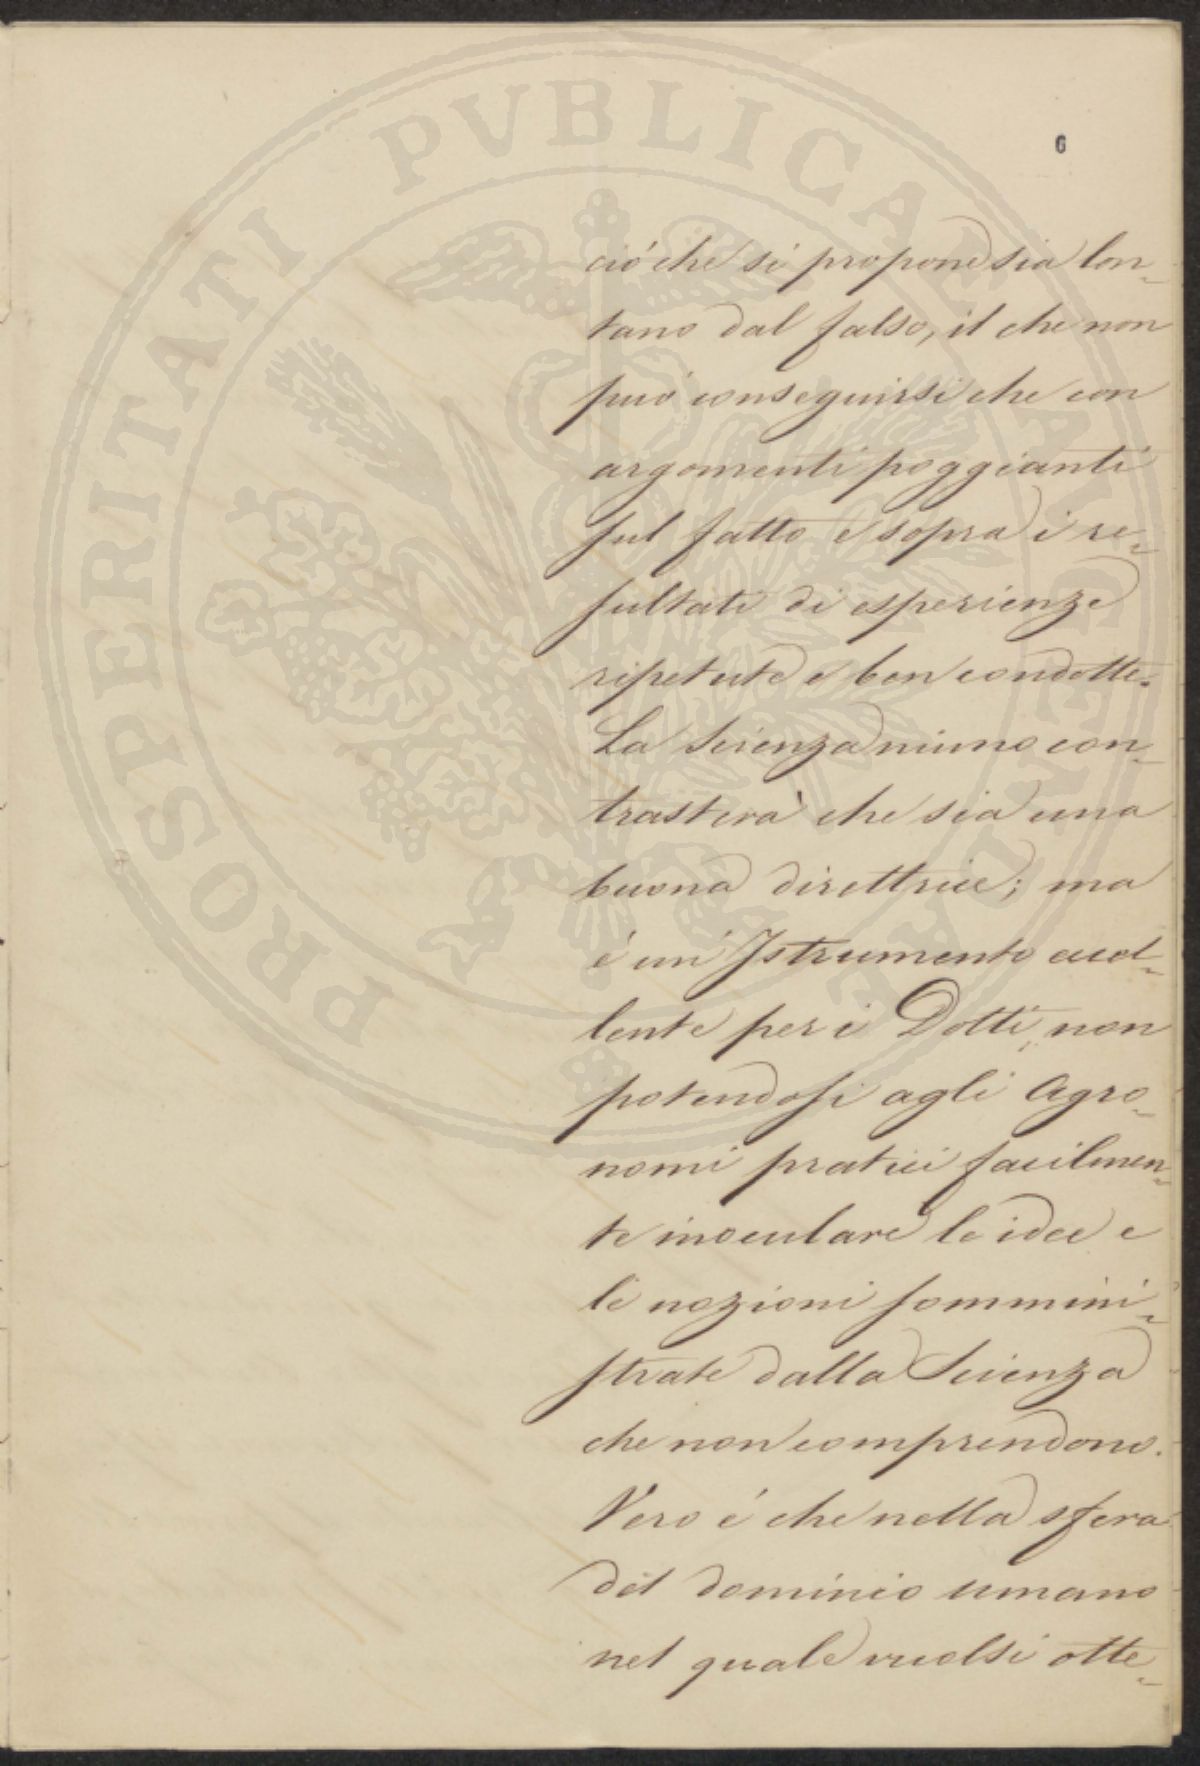 PROSPERITATI PVBLICAE AVGENDAE
6
ció che si propone sia lon-
tano dal falso, il che non
può conseguirsi che con
argomenti poggianti
sul fatto e sopra i re-
sultati di esperienze
ripetute e ben condotte.
La Scienza niuno con-
trasterà che sia una
buona direttrice; ma
é un' Istrumento eccel-
lente per i Dotti, non
potendosi agli Agro-
nomi pratici facilmen-
te inoculare le idee e
le nozioni sommini-
strate dalla Scienza
che non comprendono.
Vero é che nella sfera
del dominio umano
nel quale vuolsi otte-